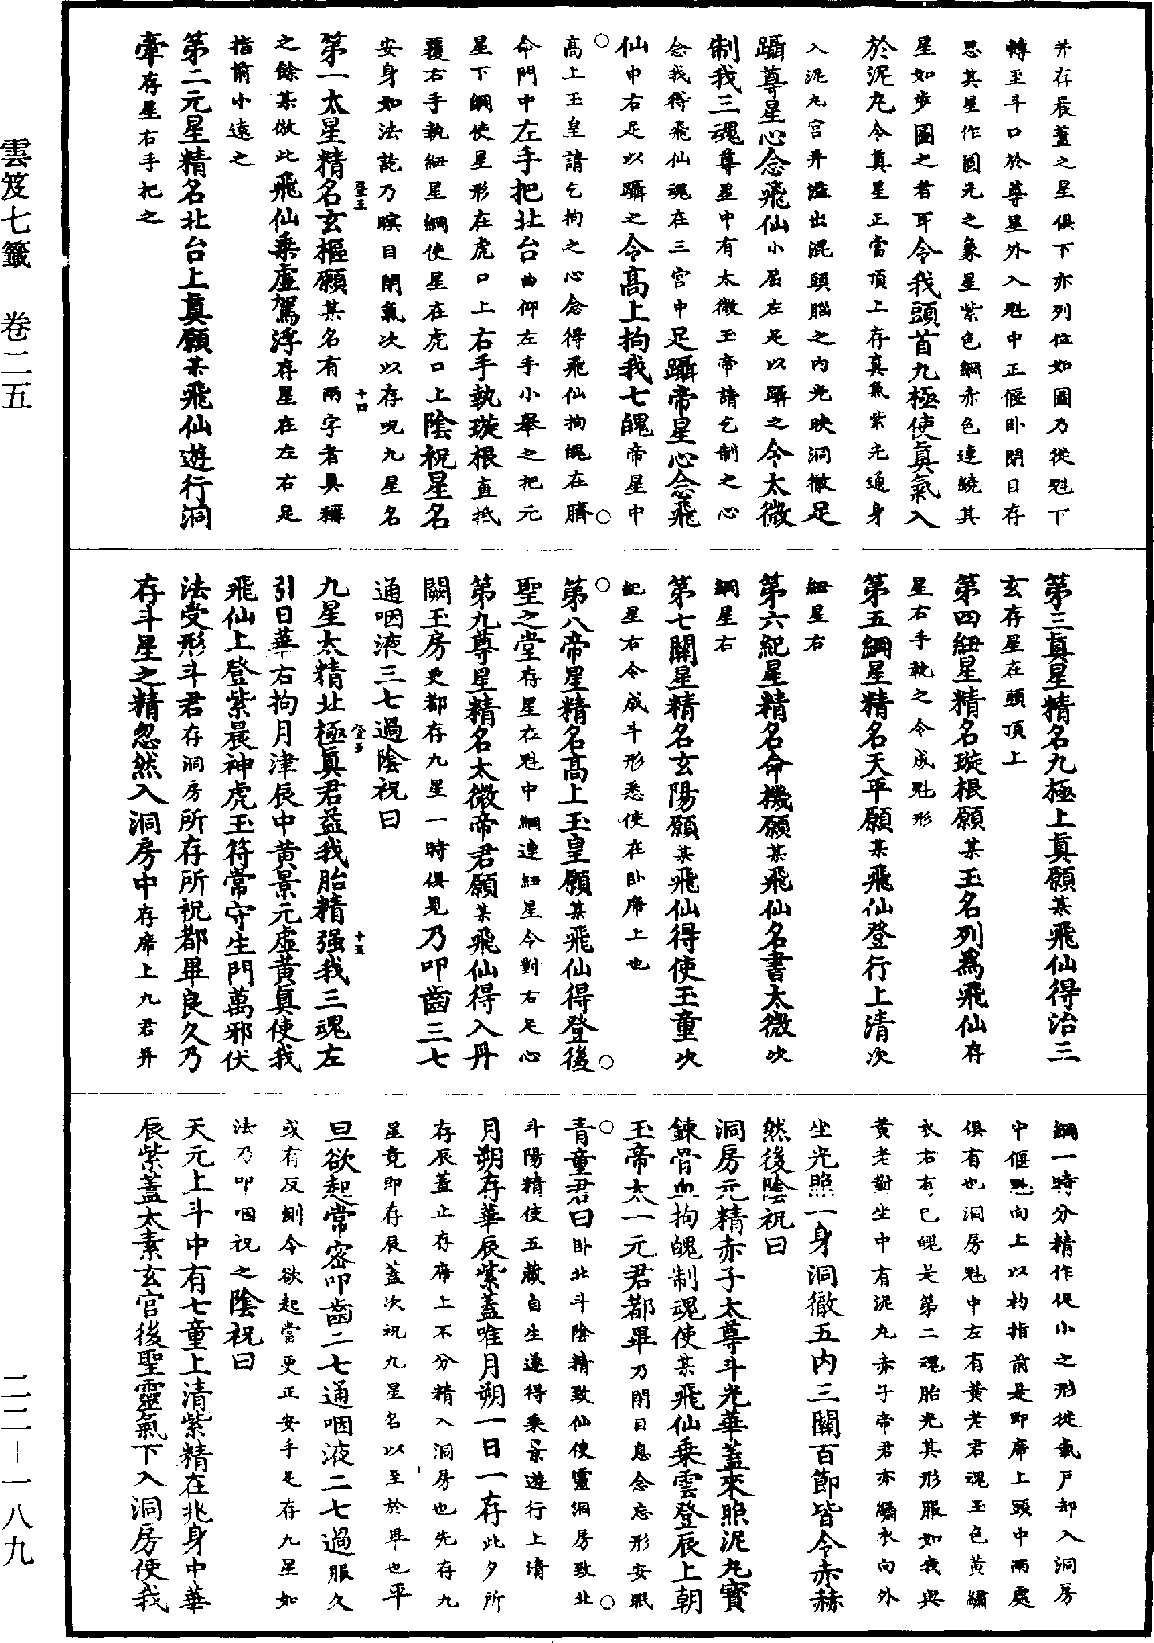 雲笈七籤 卷二五
二二－一八九
并存辰蓋之星俱下亦列位如圖乃從魁下
轉至斗口於尊星外入魁中正偃卧閉目存
思其星作圓光之象星紫色綱赤色連繞其
星如步圖之者耳令我頭首九極使真氣入
於泥丸令真星正當頂上存真氣紫光通身
入泥丸宫并溢出混頭腦之内光映洞徹足
躡尊星心念飛仙小屈左足以躡之令太微
制我三魂尊星中有太微玉帝請乞制之心
念我得飛仙魂在三宫中足躡帝星心念飛
仙中右足以躡之令高上拘我七魄帝星中
高上玉皇請乞拘之心念得飛仙拘魄在臍
命門中左手把北台曲仰左手小舉之把元
星下綱使星形在虎口上右手執璇根直抵
覆右手執紐星綱使星在虎口上陰祝星名
安身如法訖乃瞑目閉氣次以存呪九星名
第一太星精名玄樞願某名有兩字者具稱
之餘某倣此飛仙乘虛駕浮存星在左右足
指前小遠之
第二元星精名北台上真願某飛仙遊行洞
臺存星右手把之
登五
十四
第三真星精名九極上真願某飛仙得治三
玄存星在頭頂上
第四紐星精名璇根願某玉名列為飛仙存
星右手執之令成魁形
第五綱星精名天平願某飛仙登行上清次
紐星右
第六紀星精名命機願某飛仙名書太微次
綱星右
第七關星精名玄陽願某飛仙得使玉童次
紀星右令成斗形悉使在卧席上也
第八帝星精名高上玉皇願某飛仙得登後
聖之堂存星在魁中綱連紐星令對右足心
第九尊星精名太微帝君願某飛仙得入丹
闕玉房更都存九星一時俱見乃叩齒三七
通咽液三七過陰祝曰
九星太精北極真君益我胎精強我三魂左
引日華右拘月津辰中黃景元虛黃真使我
飛仙上登紫晨神虎玉符常守生門萬邪伏
法受形斗君存洞房所存所祝都畢良久乃
存斗星之精忽然入洞房中存席上九君并
登五
十五
綱一時分精作促小之形從氣戶却入洞房
中偃魁向上以杓指前是即席上頭中兩處
俱有也洞房魁中左有黃老君魂玉色黃繡
衣右有已魄是第二魂胎光其形服如我與
黃老對坐中有泥丸赤子帝君赤繡衣向外
坐光照一身洞徹五内三關百節皆令赤赫
然後陰祝曰
洞房元精赤子太尊斗光華蓋來照泥丸寶
鍊骨血拘魄制魂使某飛仙乘雲登辰上朝
玉帝太一元君都畢乃閉目息念忘形安眠
青童君曰卧北斗陰精致仙使靈洞房致北
斗陽精使五藏自生遂得乘景遊行上清
月朔存華辰紫蓋唯月朔一日一存此夕所
存辰蓋止存席上不分精入洞房也先存九
星竟即存辰蓋次祝九星名以至於畢也平
旦欲起常密叩齒二七通咽液二七過服久
或有反側今欲起當更正安手足存九星如
法乃叩咽祝之陰祝曰
天元上斗中有七童上清紫精在兆身中華
辰紫蓋太素玄宫後聖靈氣下入洞房使我